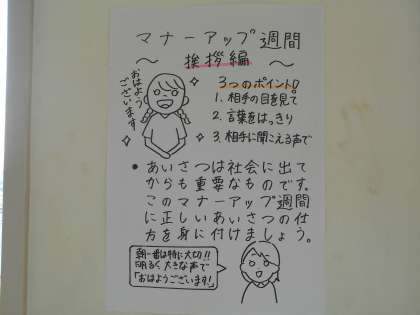 マナーアップ週間
～挨拶編～
おはよう
ございます
3つのポイント!
1. 相手の目を見て
2. 言葉をはっきり
3. 相手に聞こえる声で
• あいさつは社会に出て
からも重要なものです。
このマナーアップ週間
に正しいあいさつの仕
方を身に付けましょう。
朝一番は特に大切!!
明るく大きな声で
「おはようございます!」